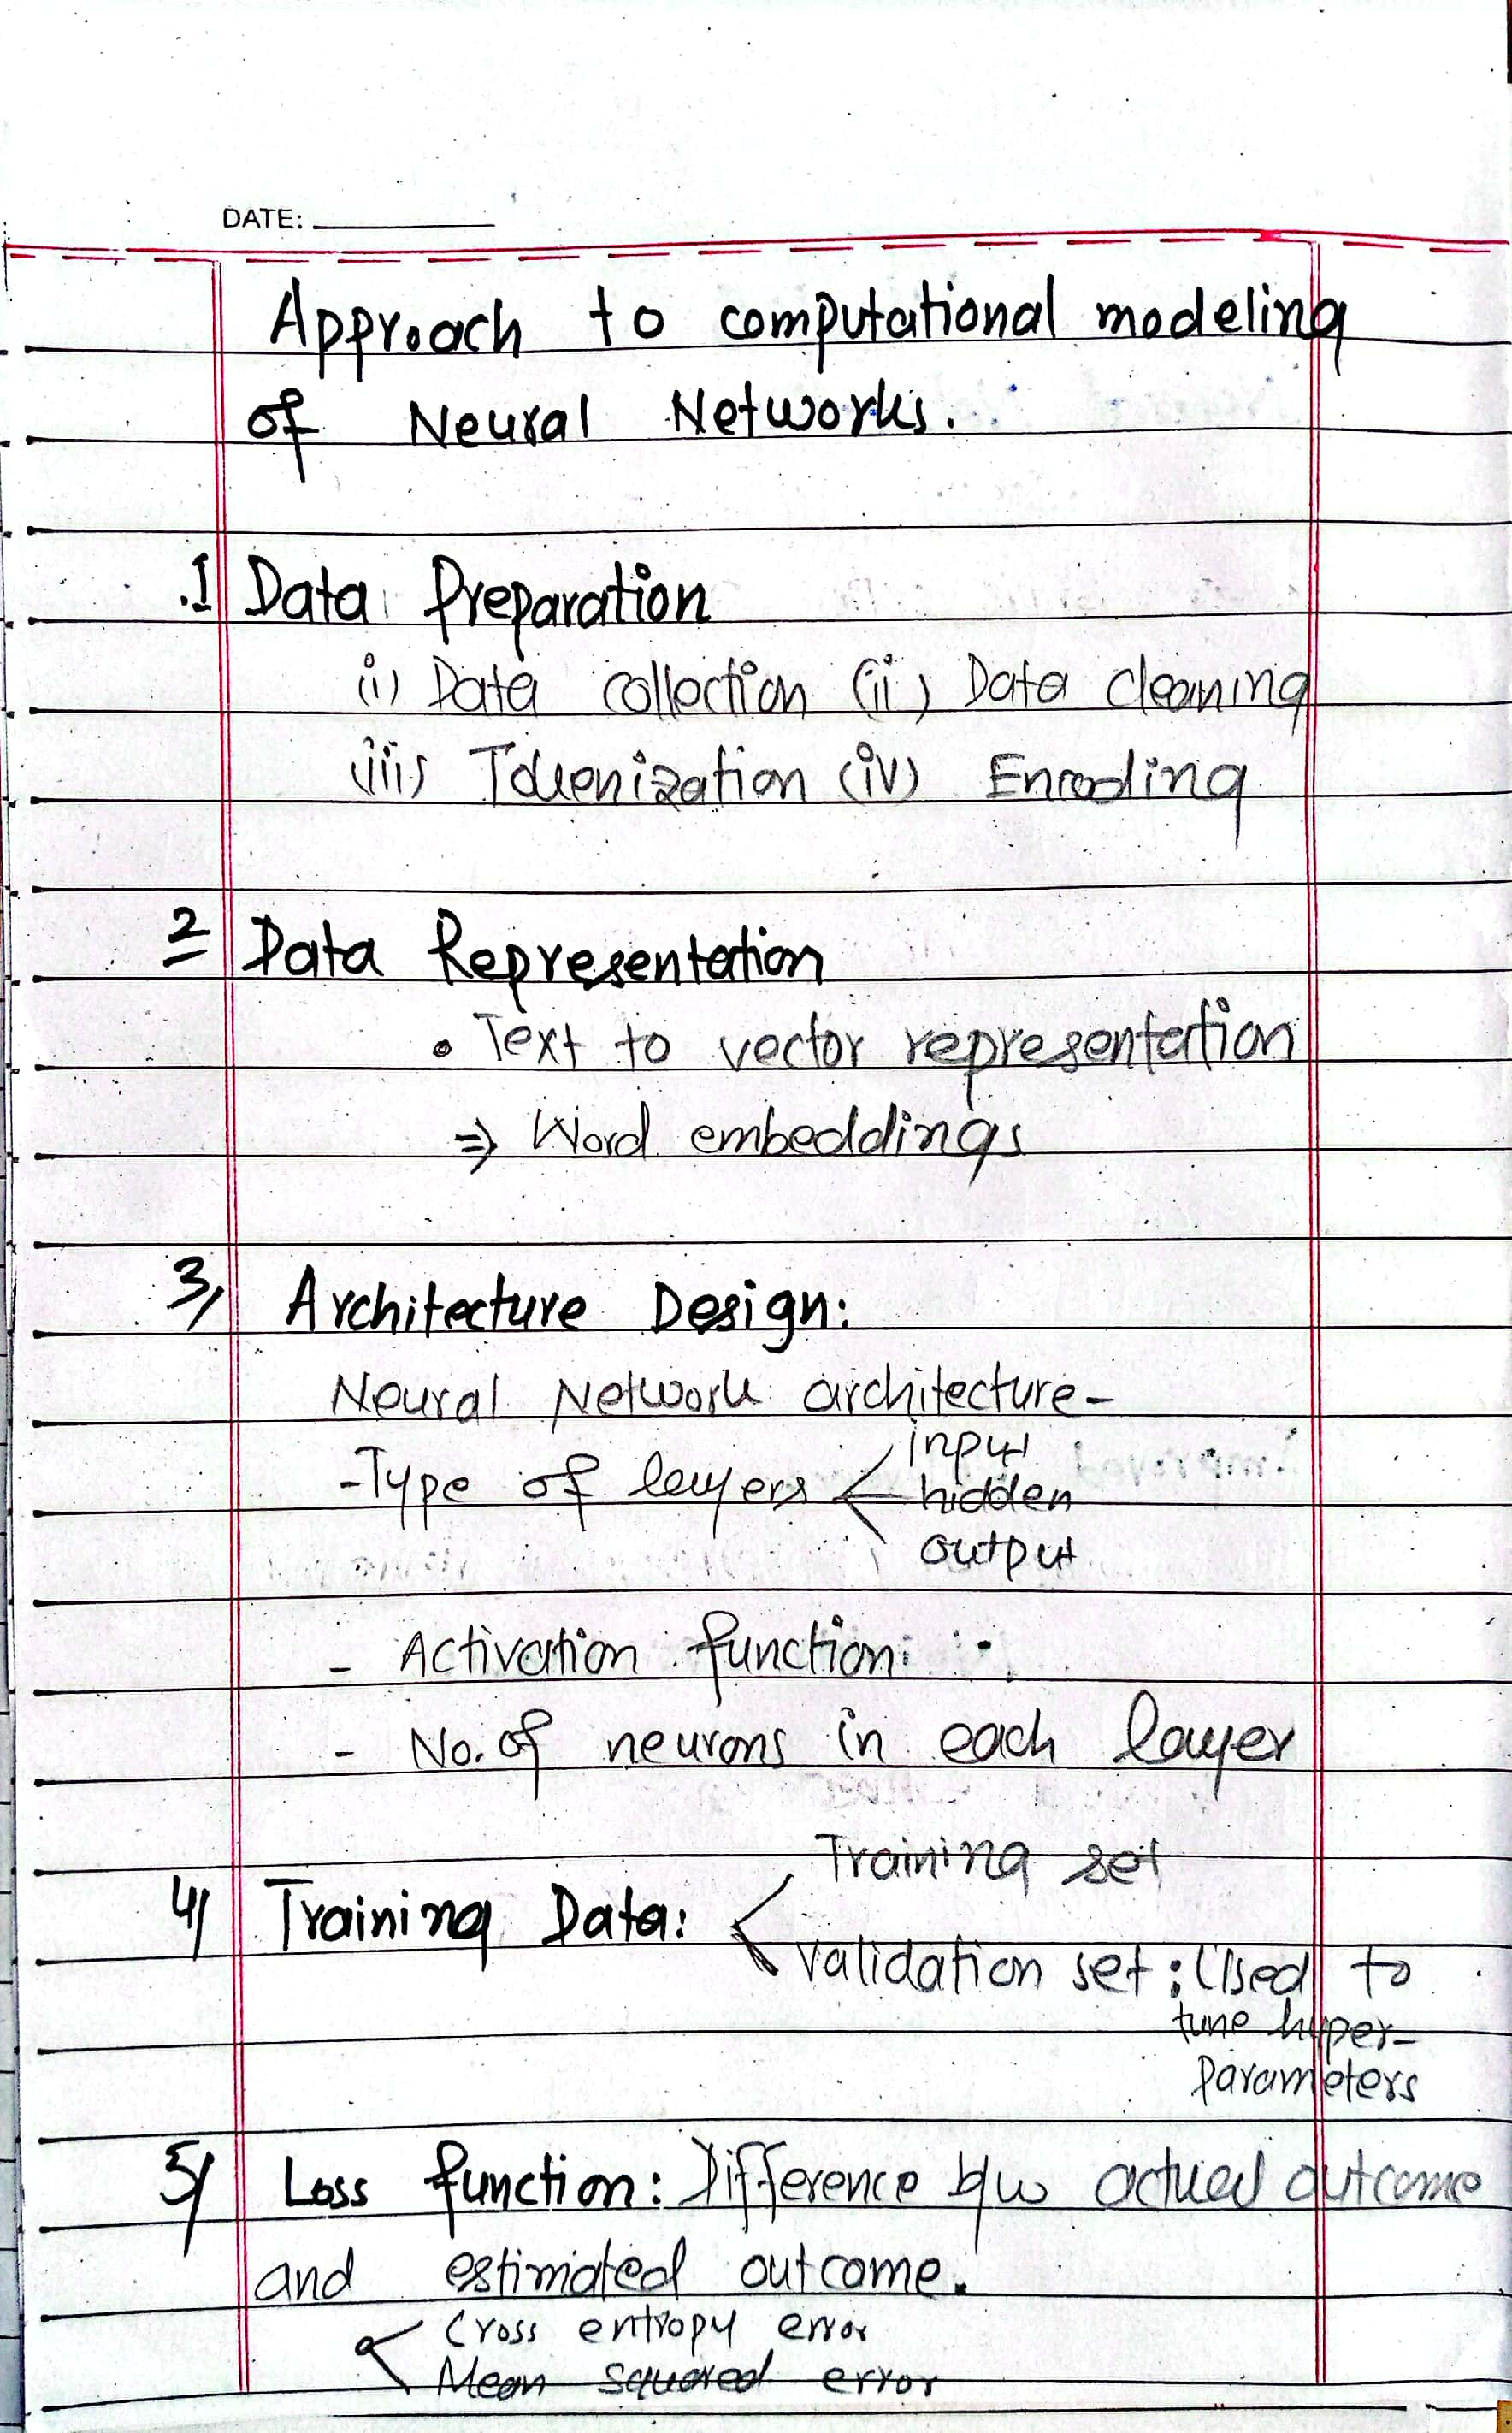 DATE:
Approach to computational modeling
of Neural Networks.
.1 Data Preparation
(i) Data collection (ii) Data cleaning
(iii) Tokenization (iv) Encoding
2 Data Representation
• Text to vector representation
⇒ Word embeddings
3, Architecture Design:
Neural Network architecture-
input
-Type of layers < hidden
output
- Activation function:
- No. of neurons in each layer
Training set
4/ Training Data: <
Validation set : Used to
tune hyper-
parameters
5/ Loss function: Difference b/w actual outcome
and estimated outcome.
Cross entropy error
Mean squared error